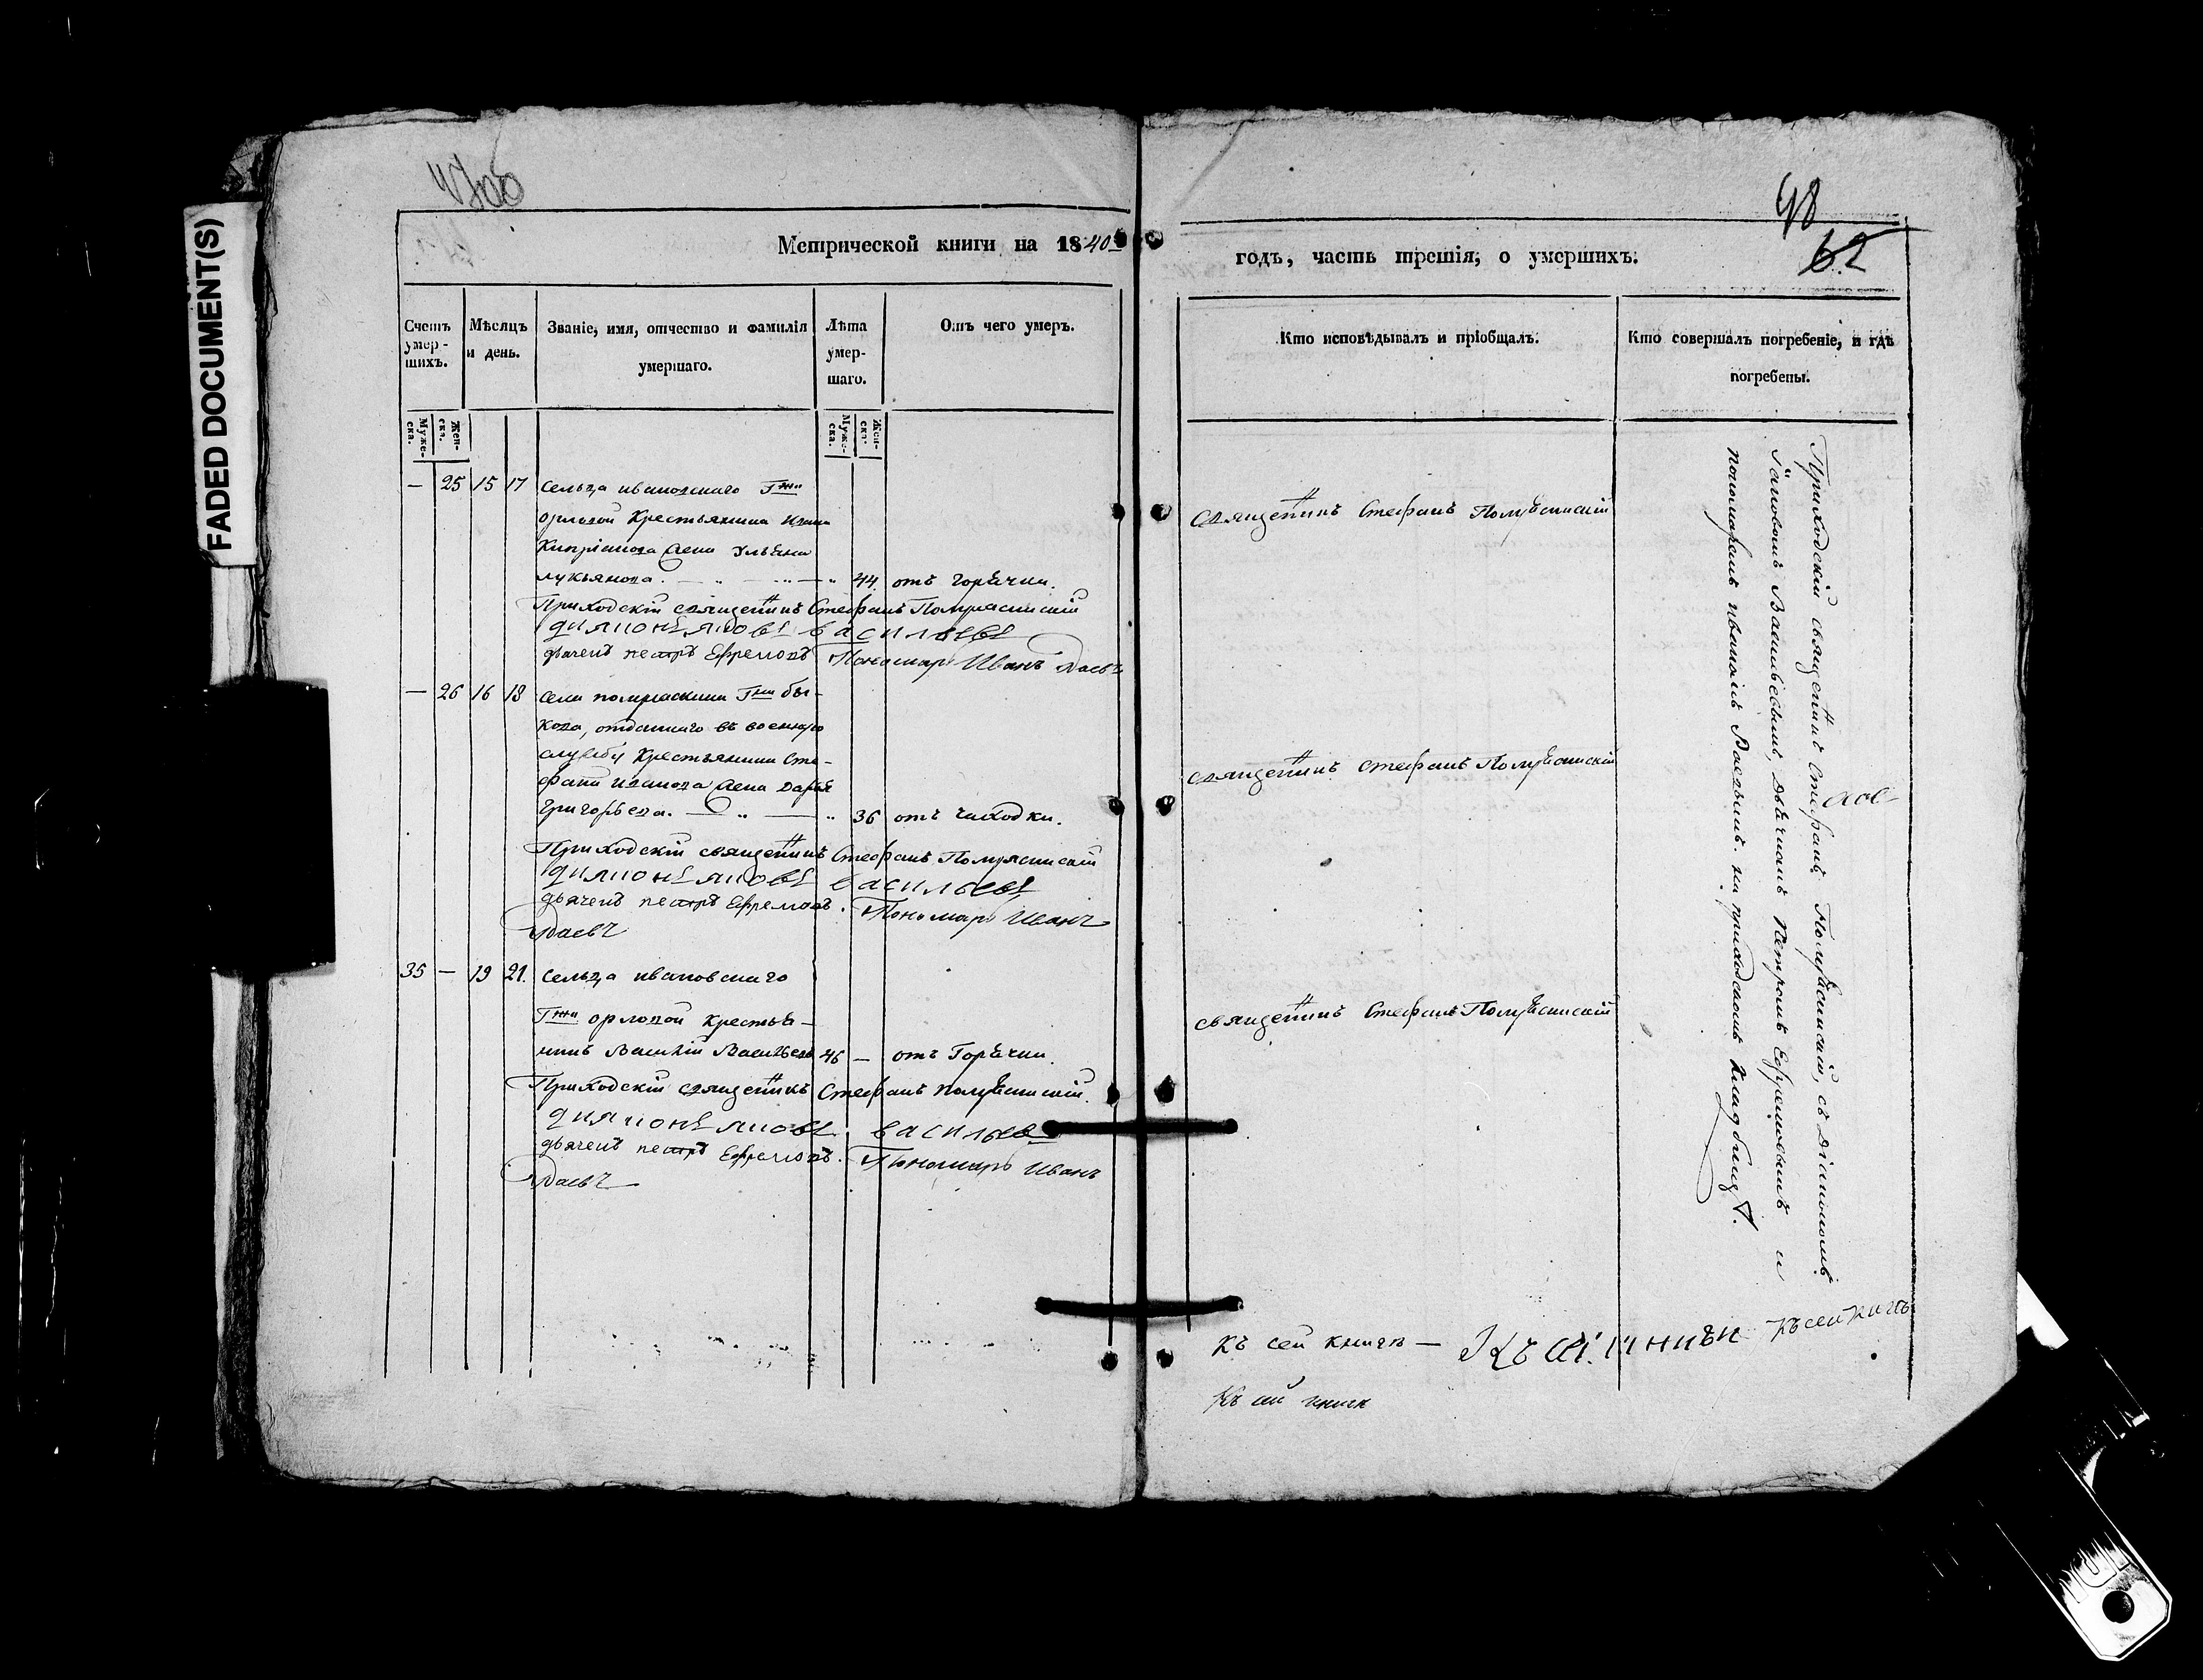 FADED DOCUMENT(S)
48
62
Метрической книги на 1840й
годъ, часть третія, о умершихъ.
Счетъ умер-шихъ.
Мѣсяцъ и день.
Званіе, имя, отчество и фамилія умершаго.
Лѣта умер-шаго.
Отъ чего умеръ.
Кто исповѣдывалъ и пріобщалъ.
Кто совершалъ погребеніе, и гдѣ погребены.
Муже-ска.
Жен-ска.
Муже-ска.
Жен-ска.
— 25 15 17 Сельца ивановскаго Гжи
орловой Крестьянина Ивана
Кипріанова жена Ульяна
лукьянова. — 44 отъ горячки.
Священникъ Стефанъ
Приходскій священникъ Стефанъ
дияконъ яковъ васильевъ
дьячекъ петръ Ефремовъ Пономарь Иванъ
— 26 16 18 Села Гжи бы-
кова, отданнаго въ военную
службу Крестьянина Сте-
фана иванова жена Дарья
Григорьева. — 36 отъ чахотки.
священникъ стефанъ
Приходскій священникъ Стефанъ
диякон яковъ васильевъ
дьячекъ петръ Ефремовъ. Пономарь Иванъ
35 — 19 21. Сельца ивановскаго
Гжи орловой Крестья-
нинъ Василій Васильевъ 46 — отъ Горячки.
священникъ Стефанъ
Приходскій священникъ Стефанъ
диякон яковъ васильевъ
дьячекъ петръ Ефремовъ. Пономарь Иванъ
Приходскій священникъ Стефанъ съ Діакономъ
Іаковомъ Васильевымъ, Дьячкомъ Петромъ Ефремовымъ и
пономаремъ иваномъ на приходскомъ кладбищѣ.
Къ сей книгѣ — Къ сей книги Къ сей книгѣ
Къ сей книги